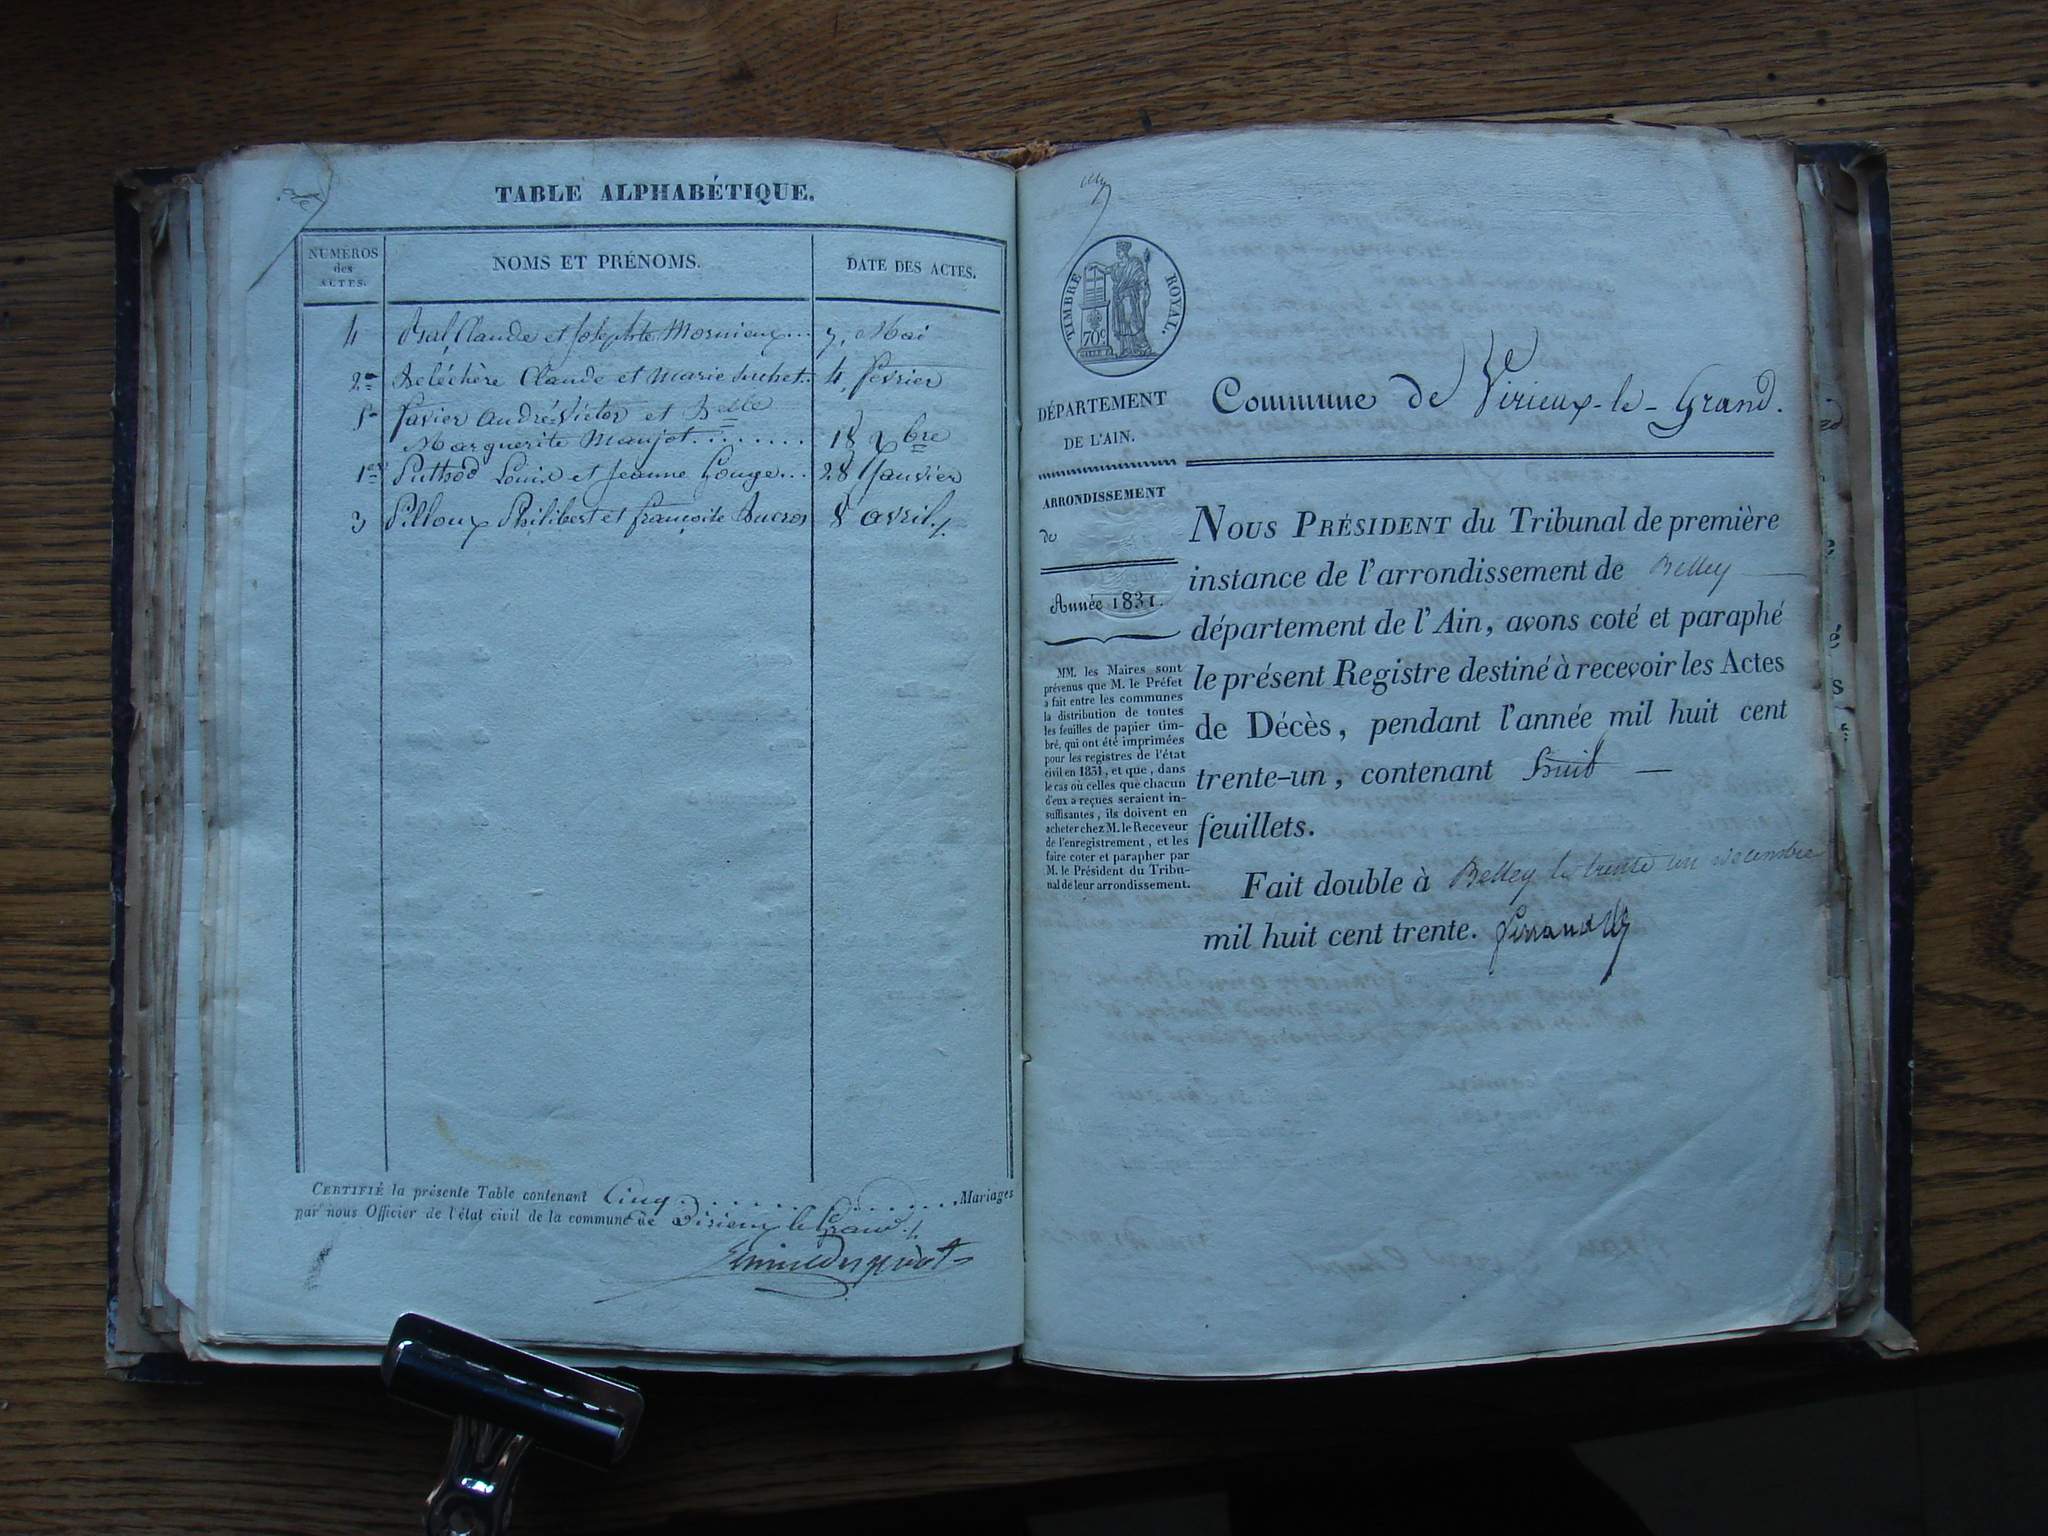 TABLE ALPHABÉTIQUE.
NUMÉROS des ACTES.
NOMS ET PRÉNOMS.
DATE DES ACTES.
4 Bal, Claude et Josephte Mornieux... 7, Mai
2 Deléchère Claude et Marie Suchet.. 4, février
5 Favier André Victor et Delle
Marguerite Maujot........ 18 Xbre
1er Puthod Louis et Jeanne Gouge... 28 Janvier
3 Pilloux Philibert et françoise Ducros 8 avril./.
CERTIFIÉ la présente Table contenant Cinq Mariages
par nous Officier de l'état civil de la commune de Virieux le Grand ./.
TIMBRE ROYAL.
70c
DÉPARTEMENT
DE L'AIN.
ARRONDISSEMENT
de
Année 1831.
MM. les Maires sont
prévenus que M. le Préfet
a fait entre les communes
la distribution de toutes
les feuilles de papier tim-
bré, qui ont été imprimées
pour les registres de l'état
civil en 1831, et que, dans
le cas où celles que chacun
d'eux a reçues seraient in-
suffisantes, ils doivent en
acheter chez M. le Receveur
de l'enregistrement, et les
faire coter et parapher par
M. le Président du Tribu-
nal de leur arrondissement.
Commune de Virieux-le-Grand.
NOUS PRÉSIDENT du Tribunal de première
instance de l'arrondissement de Belley
département de l'Ain, avons coté et paraphé
le présent Registre destiné à recevoir les Actes
de Décès, pendant l'année mil huit cent
trente-un, contenant huit
feuillets.
Fait double à Belley le trente un décembre
mil huit cent trente.